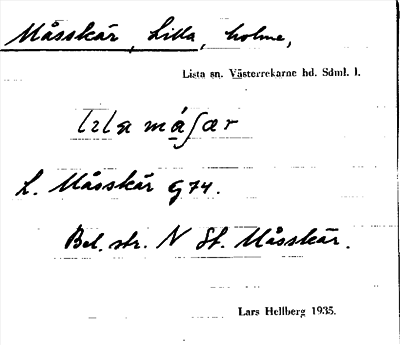 Måsskär, Lilla, holme,
Lista sn. Västerrekarne hd. Sdml. l.
L. Måsskär G74.
Bel. str. N St. Måsskär.
Lars Hellberg 1935.